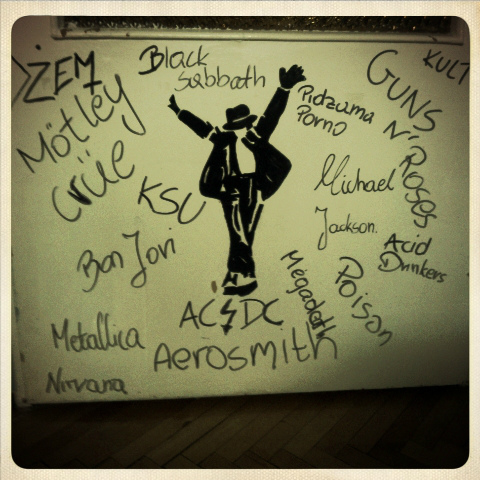 DŻEM
Black
Sabbath
GUNS
N' Roses
KULT
Mötley
Crüe
Pidżama
Porno
KSU
Michael
Jackson.
Acid
Drinkers
Bon Jovi
Megadeth
Poison
AC⚡DC
Metallica
Aerosmith
Nirvana